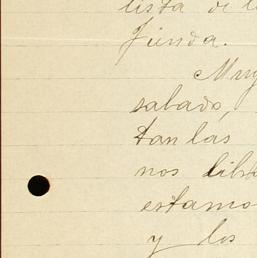 lista de l
Tienda.
Muy
sabado,
tan las
nos lib
estamo
y los